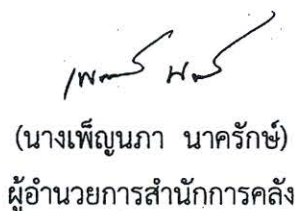 (นางเพ็ญนภา นาครักษ์)
ผู้อำนวยการสำนักการคลัง